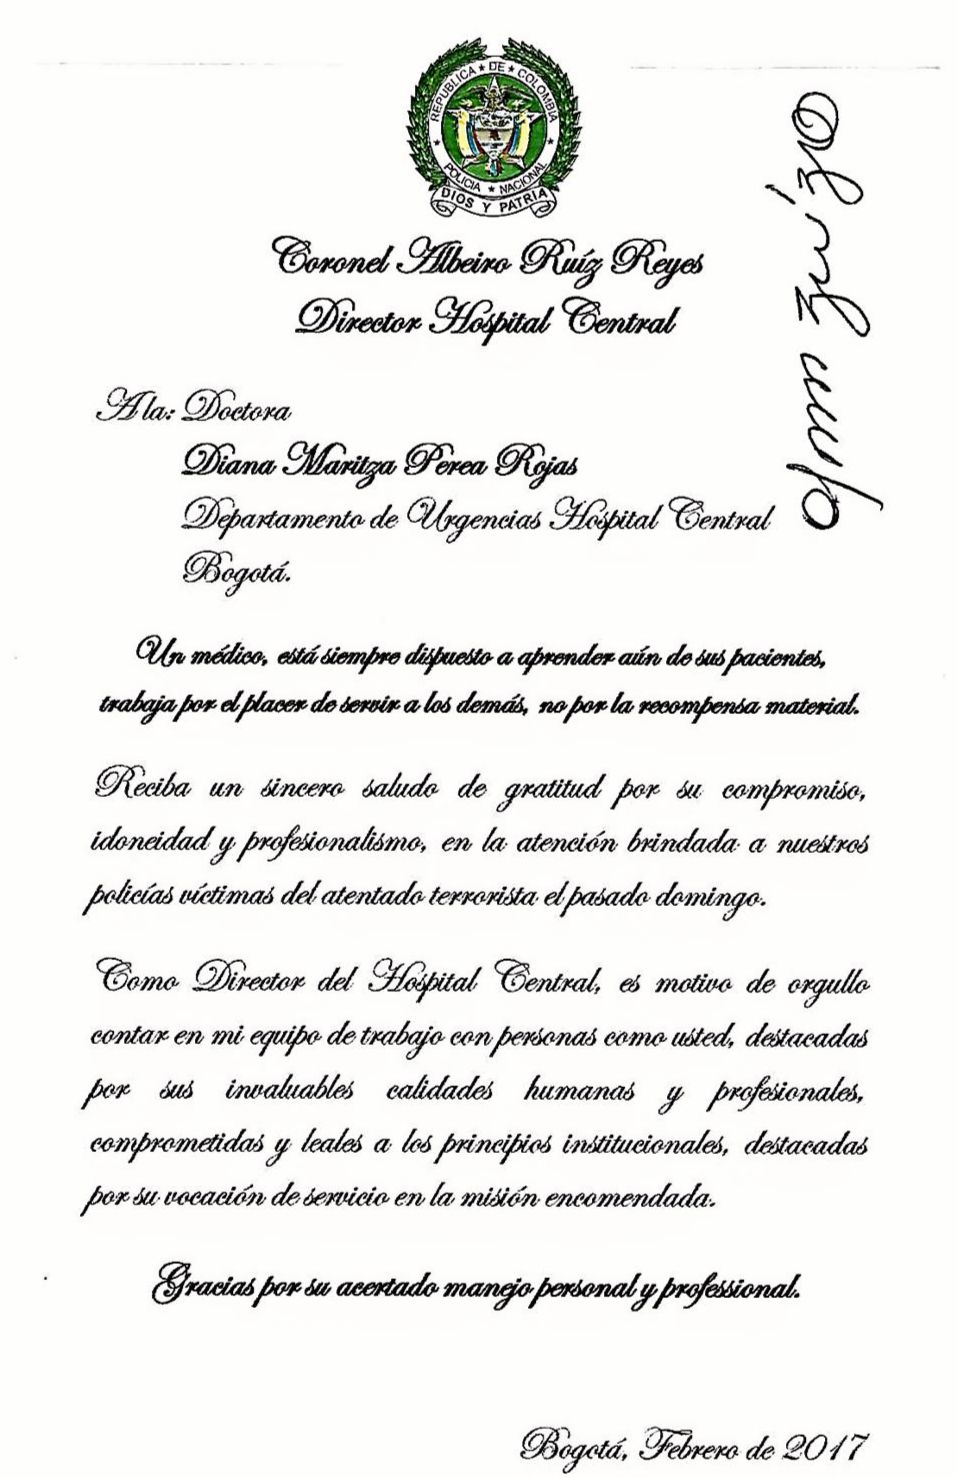 REPUBLICA ★ DE ★ COLOMBIA
POLICIA ★ NACIONAL
DIOS Y PATRIA
Coronel Albeiro Ruíz Reyes
Director Hospital Central
A la: Doctora
Diana Maritza Perea Rojas
Departamento de Urgencias Hospital Central
Bogotá.
Un médico, está siempre dispuesto a aprender aún de sus pacientes,
trabaja por el placer de servir a los demás, no por la recompensa material.
Reciba un sincero saludo de gratitud por su compromiso,
idoneidad y profesionalismo, en la atención brindada a nuestros
policías víctimas del atentado terrorista el pasado domingo.
Como Director del Hospital Central, es motivo de orgullo
contar en mi equipo de trabajo con personas como usted, destacadas
por sus invaluables calidades humanas y profesionales,
comprometidas y leales a los principios institucionales, destacadas
por su vocación de servicio en la misión encomendada.
Gracias por su acertado manejo personal y professional.
Bogotá, Febrero de 2017